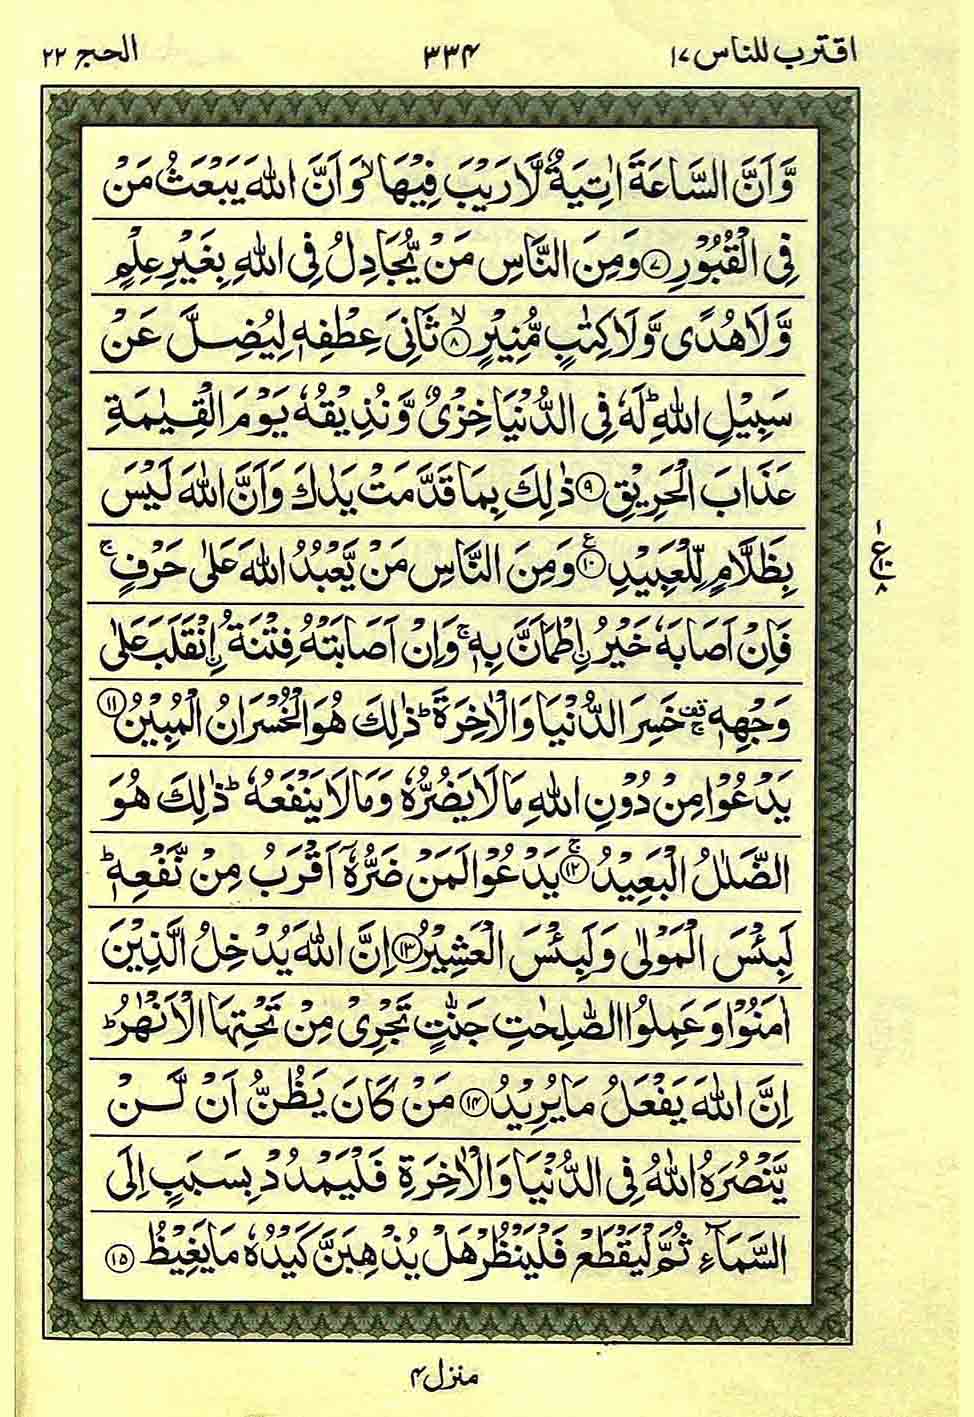 اقترب للناس ۱۷ ۳۳۴ الحج ۲۲
وَّاَنَّ السَّاعَةَ اٰتِيَةٌ لَّا رَيْبَ فِيْهَا ۙ وَاَنَّ اللّٰهَ يَبْعَثُ مَنْ
فِى الْقُبُوْرِ ﴿۷﴾ وَمِنَ النَّاسِ مَنْ يُّجَادِلُ فِى اللّٰهِ بِغَيْرِ عِلْمٍ
وَّلَا هُدًى وَّلَا كِتٰبٍ مُّنِيْرٍ ۙ﴿۸﴾ ثَانِىَ عِطْفِهٖ لِيُضِلَّ عَنْ
سَبِيْلِ اللّٰهِ ؕ لَهٗ فِى الدُّنْيَا خِزْىٌ وَّنُذِيْقُهٗ يَوْمَ الْقِيٰمَةِ
عَذَابَ الْحَرِيْقِ ﴿۹﴾ ذٰلِكَ بِمَا قَدَّمَتْ يَدٰكَ وَاَنَّ اللّٰهَ لَيْسَ
بِظَلَّامٍ لِّلْعَبِيْدِ ﴿۱۰﴾ ع وَمِنَ النَّاسِ مَنْ يَّعْبُدُ اللّٰهَ عَلٰى حَرْفٍ ۚ
۱ ع ۱۰ ۸
فَاِنْ اَصَابَهٗ خَيْرُ ۨ اطْمَاَنَّ بِهٖ ۚ وَاِنْ اَصَابَتْهُ فِتْنَةُ ۨ انْقَلَبَ عَلٰى
وَجْهِهٖ ۚ قف خَسِرَ الدُّنْيَا وَالْاٰخِرَةَ ؕ ذٰلِكَ هُوَ الْخُسْرَانُ الْمُبِيْنُ ﴿۱۱﴾
يَدْعُوْا مِنْ دُوْنِ اللّٰهِ مَا لَا يَضُرُّهٗ وَمَا لَا يَنْفَعُهٗ ؕ ذٰلِكَ هُوَ
الضَّلٰلُ الْبَعِيْدُ ۚ﴿۱۲﴾ يَدْعُوْا لَمَنْ ضَرُّهٗۤ اَقْرَبُ مِنْ نَّفْعِهٖ ؕ
لَبِئْسَ الْمَوْلٰى وَلَبِئْسَ الْعَشِيْرُ ﴿۱۳﴾ اِنَّ اللّٰهَ يُدْخِلُ الَّذِيْنَ
اٰمَنُوْا وَعَمِلُوا الصّٰلِحٰتِ جَنّٰتٍ تَجْرِىْ مِنْ تَحْتِهَا الْاَنْهٰرُ ؕ
اِنَّ اللّٰهَ يَفْعَلُ مَا يُرِيْدُ ﴿۱۴﴾ مَنْ كَانَ يَظُنُّ اَنْ لَّنْ
يَّنْصُرَهُ اللّٰهُ فِى الدُّنْيَا وَالْاٰخِرَةِ فَلْيَمْدُدْ بِسَبَبٍ اِلَى
السَّمَآءِ ثُمَّ لْيَقْطَعْ فَلْيَنْظُرْ هَلْ يُذْهِبَنَّ كَيْدُهٗ مَا يَغِيْظُ ﴿۱۵﴾
منزل ۴